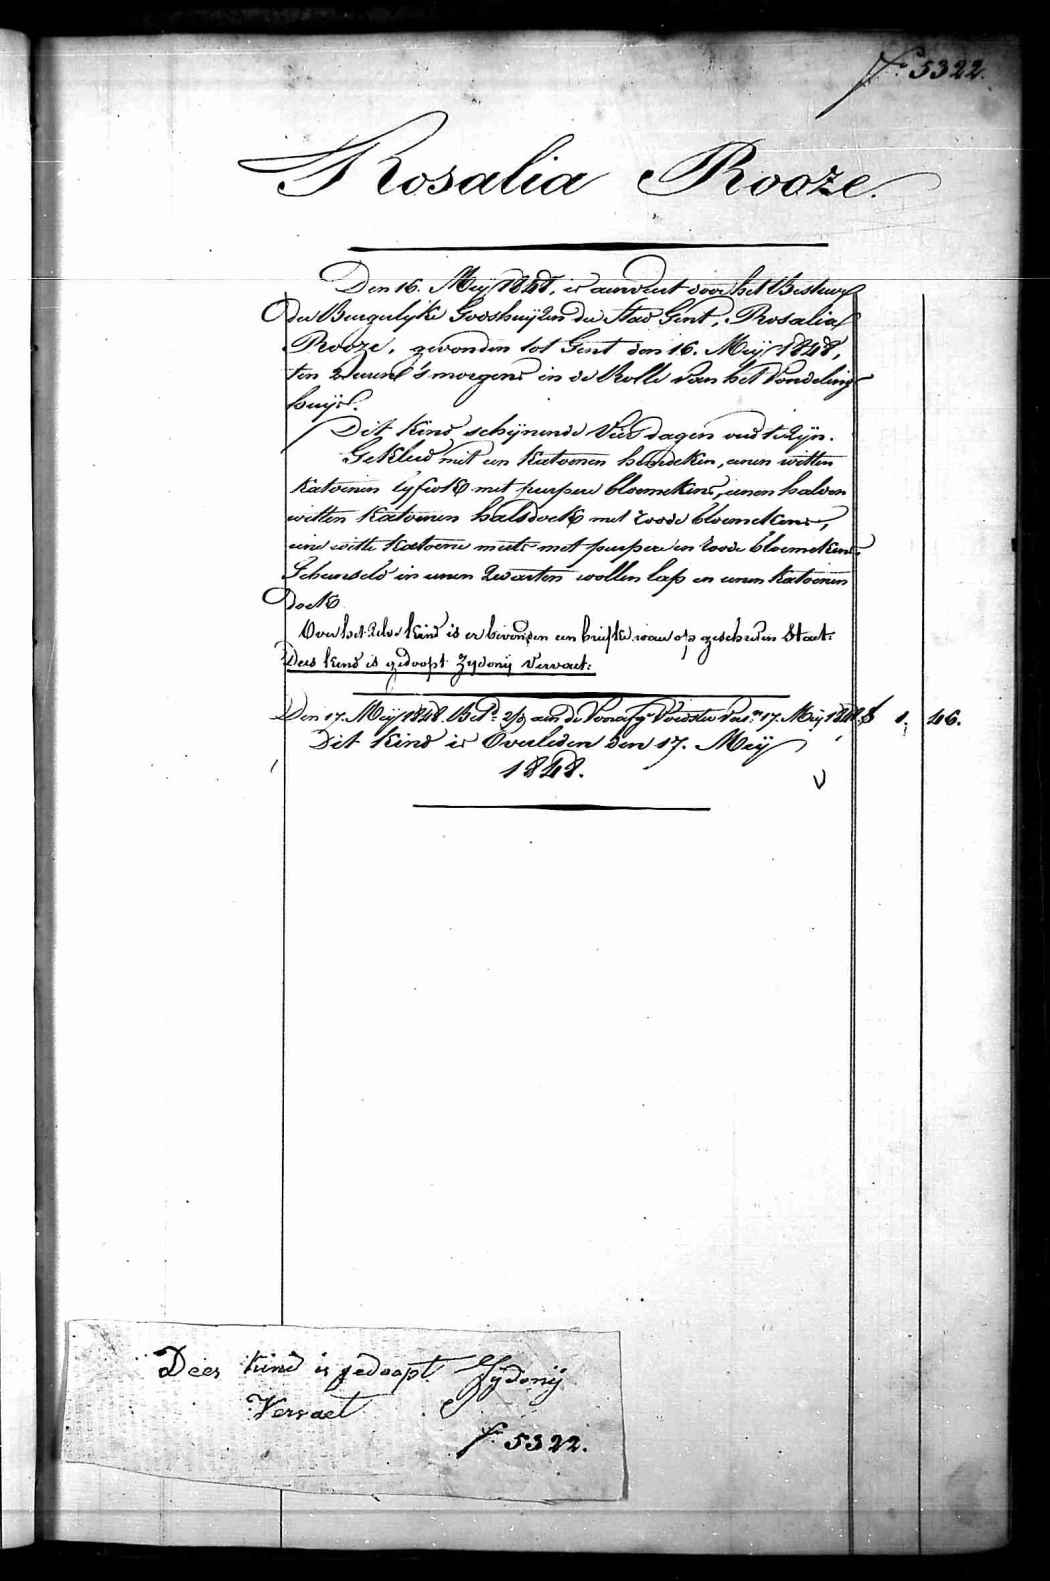 f° 5322.
Rosalia Rooze.
Den 16. Meij 1848, is aenveert door het Bestuer
der Burgerlijke Godshuijzen der Stad Gent, Rosalia
Rooze, gevonden tot Gent den 16. Meij 1848,
ten 2 uren 's morgens in de Rolle van het Vondeling
huijs.
Dit Kind schijnende vier dagen oud te zijn.
Gekleed met een Katoenen hemdeken, eenen witten
Katoenen lijfrok met purpere bloemekens, eenen halven
witten Katoenen halsdoek met roode bloemekens,
eene witte Katoene muts met purpere en roode bloemekens
Gebusseld in eenen zwarten wollen lap en eenen Katoenen
doek
Over het zelve kind is er bevonden een briefke waer op geschreven Staet:
Dees kind is gedoopt Zydonij Vervaet:
Den 17. Meij 1848. Bet.d aen de Voedster 17. Meij 1848. f 1. 46.
Dit Kind is Overleden den 17. Meij
1848.
Dees kind is gedoopt Sydonij
Vervaet
f° 5322.